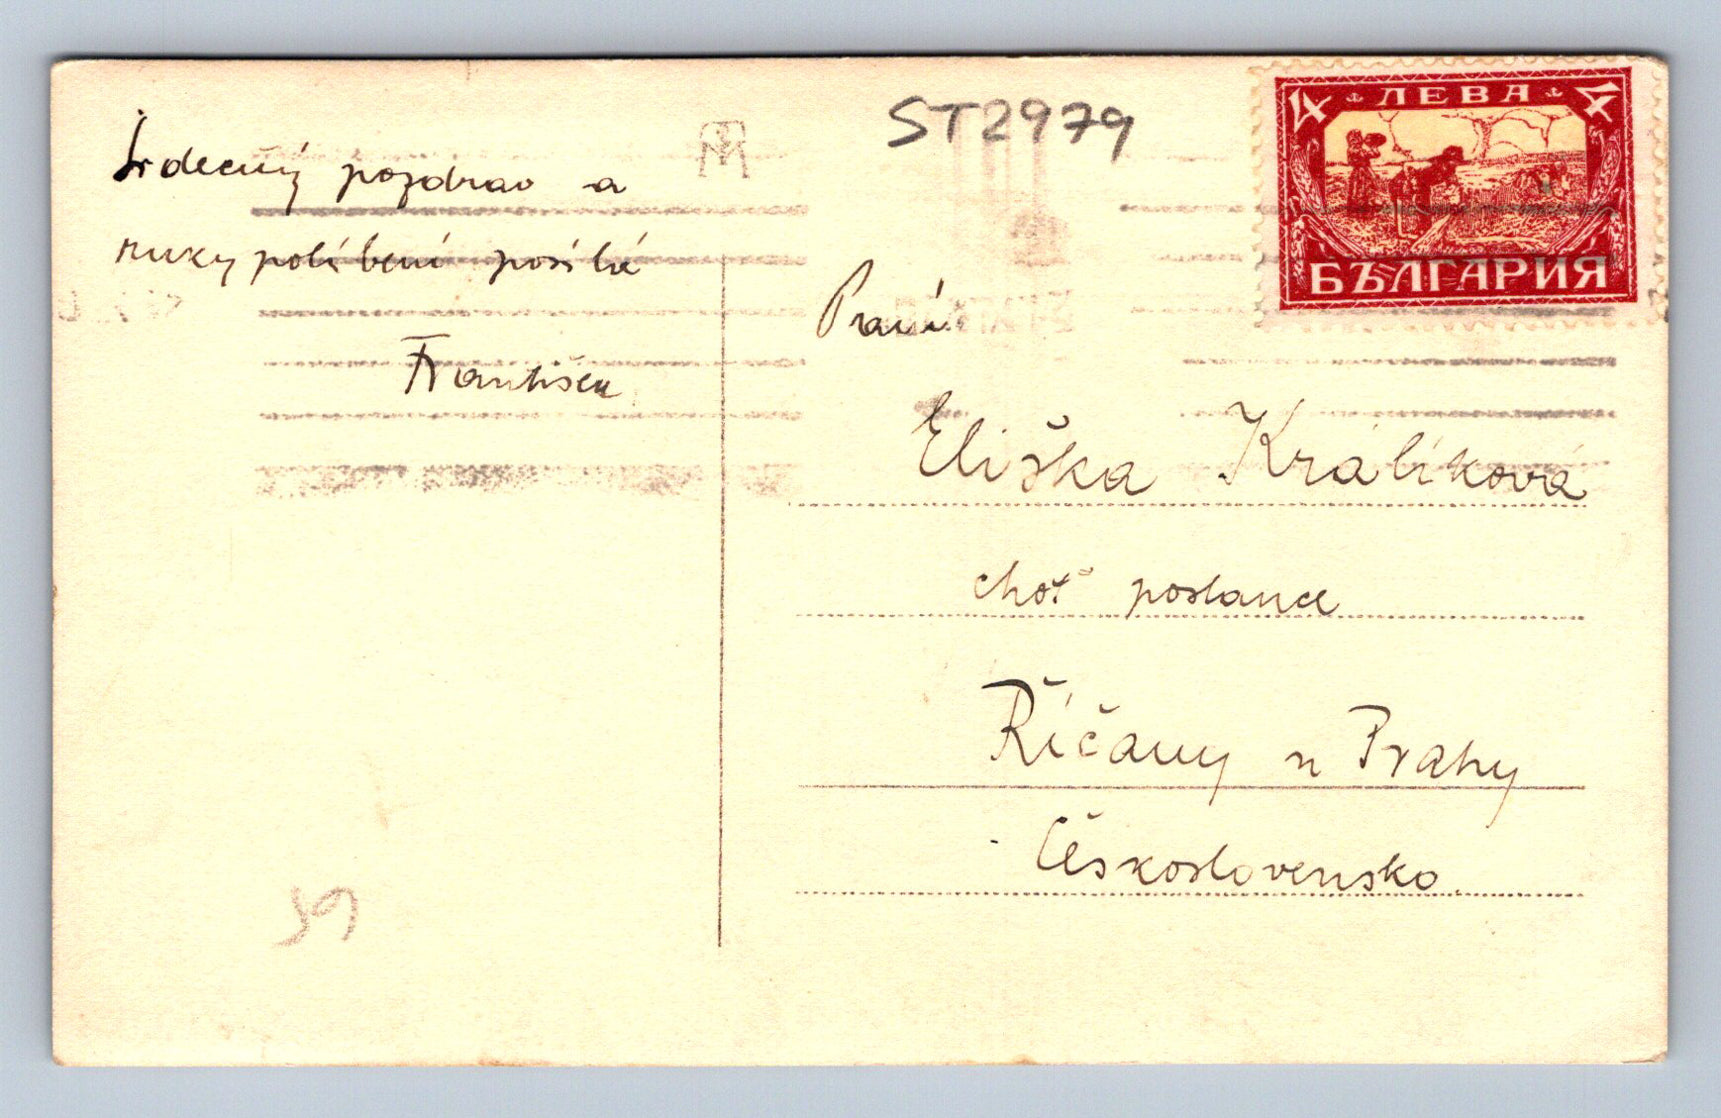 Srdečný pozdrav a
ruky políbení posílá
František
ST2979
4 ЛЕВА 4
БЪЛГАРИЯ
Paní
Eliška Králíková
choť poslance
Říčany u Prahy
Československo.